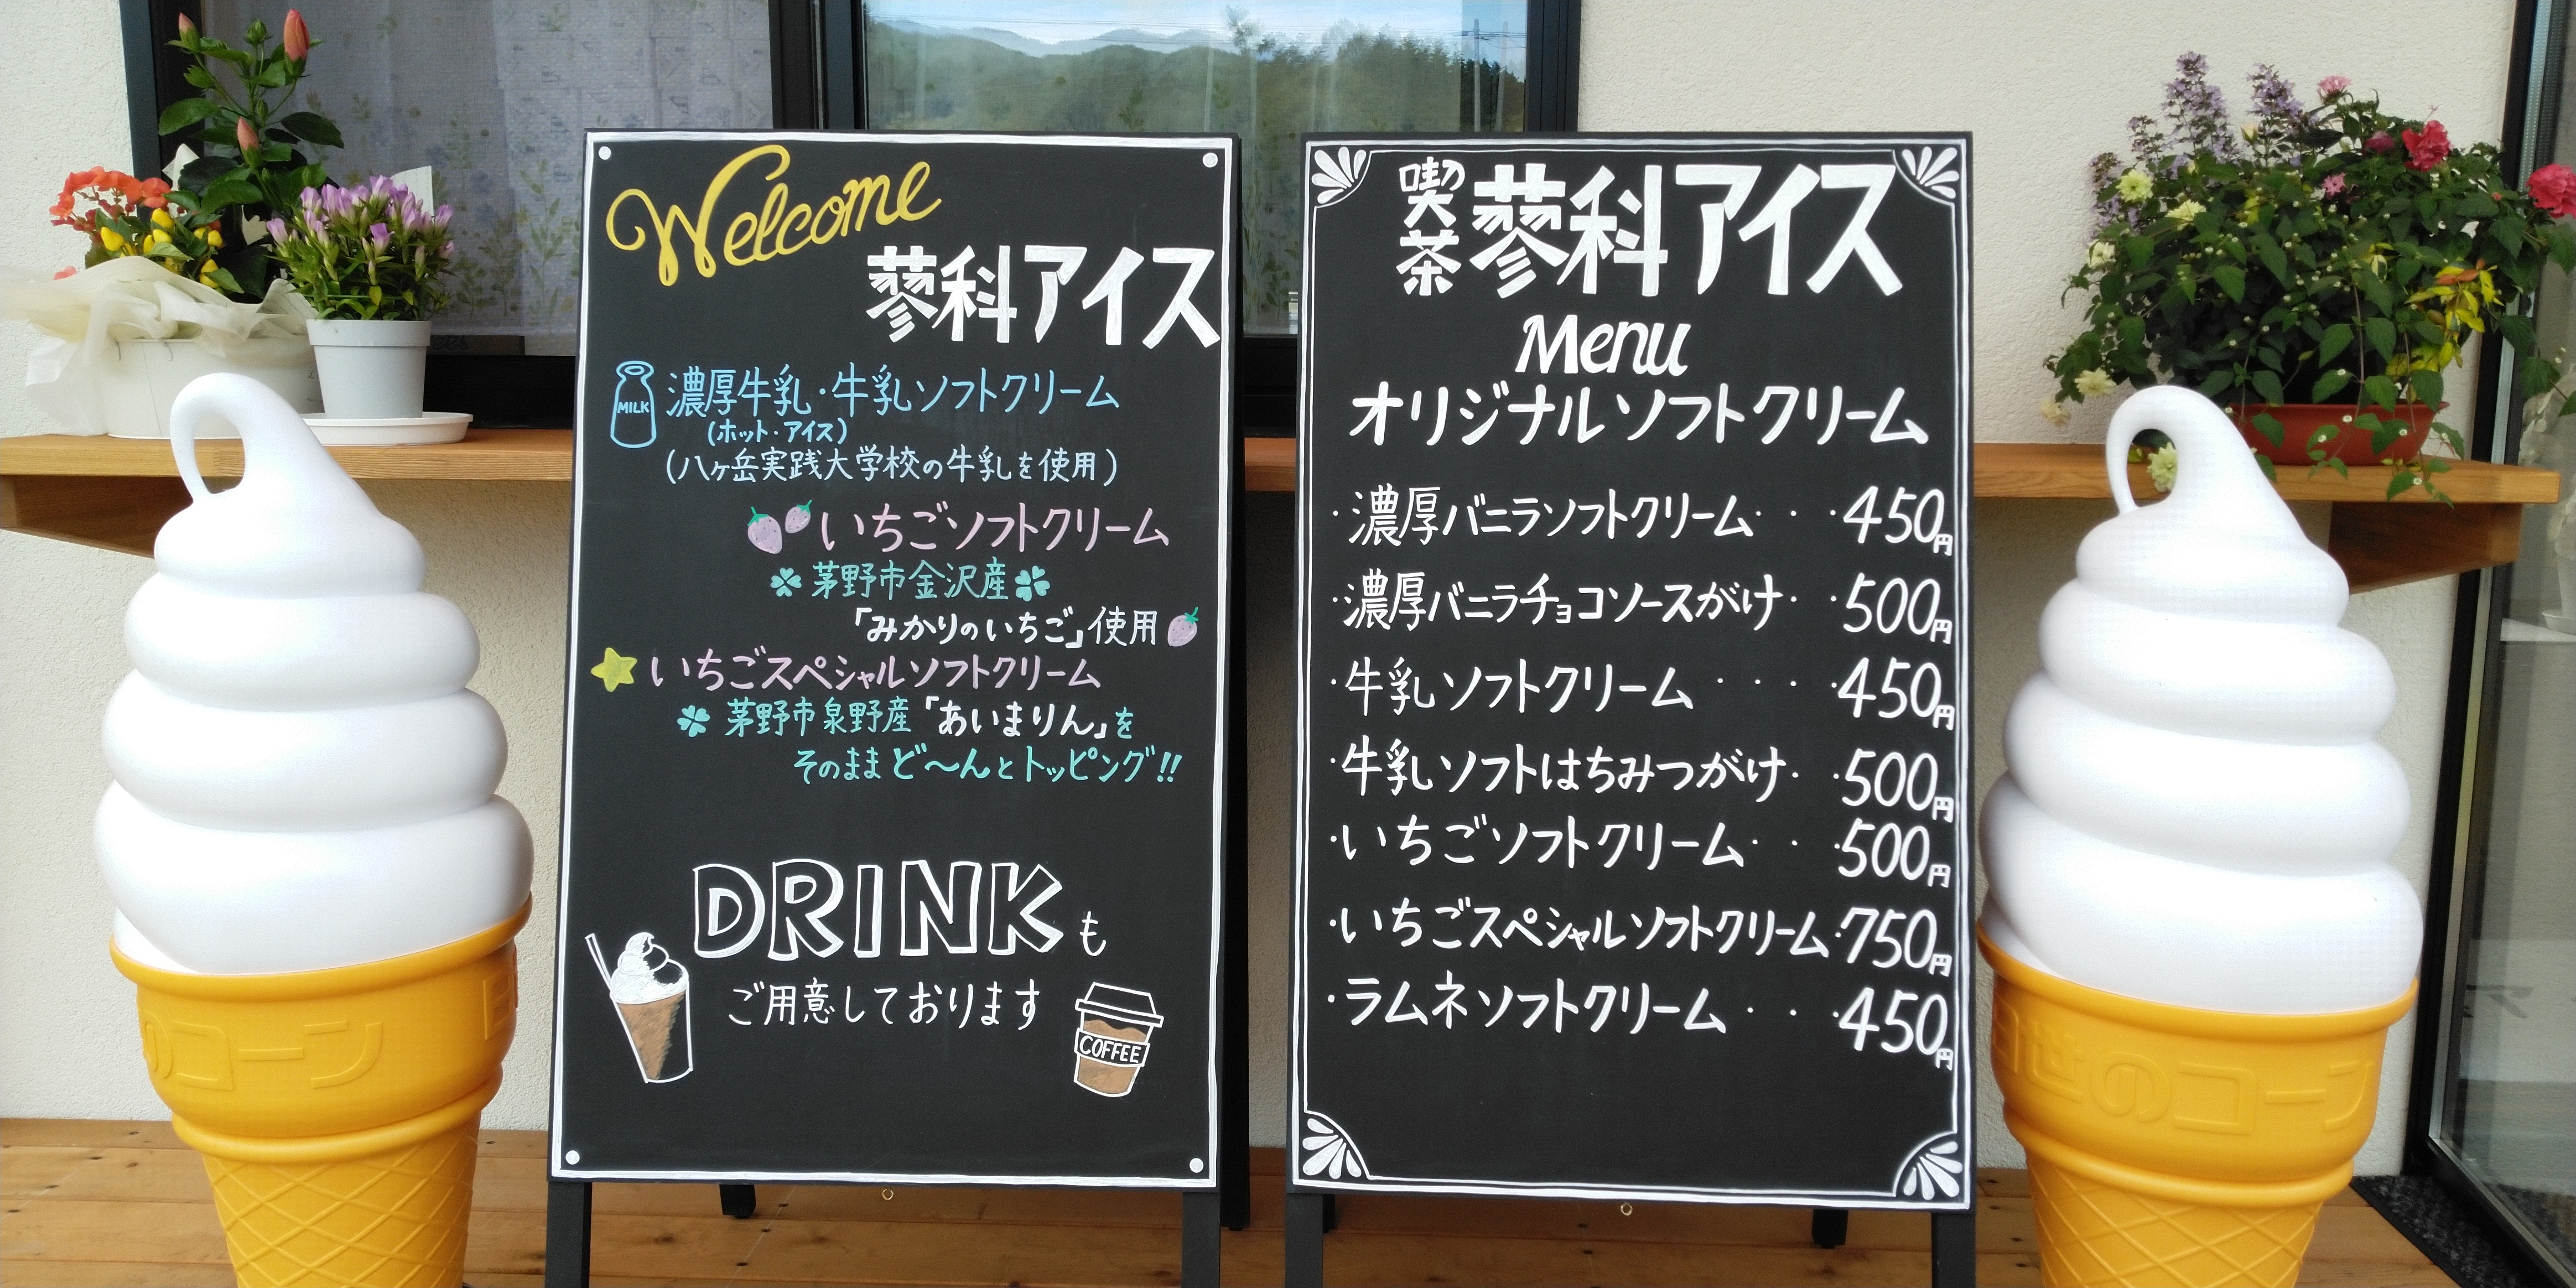 Welcome
蓼科アイス
MILK
濃厚牛乳・牛乳ソフトクリーム
(ホット・アイス)
(八ヶ岳実践大学校の牛乳を使用)
いちごソフトクリーム
茅野市金沢産
「みかりのいちご」使用
いちごスペシャルソフトクリーム
茅野市泉野産「あいまりん」を
そのままど〜んとトッピング!!
DRINKも
ご用意しております
COFFEE
喫茶 蓼科アイス
Menu
オリジナルソフトクリーム
・濃厚バニラソフトクリーム・・・450円
・濃厚バニラチョコソースがけ・・500円
・牛乳ソフトクリーム・・・・450円
・牛乳ソフトはちみつがけ・・500円
・いちごソフトクリーム・・・500円
・いちごスペシャルソフトクリーム・750円
・ラムネソフトクリーム・・・450円
のコーン
日世のコーン